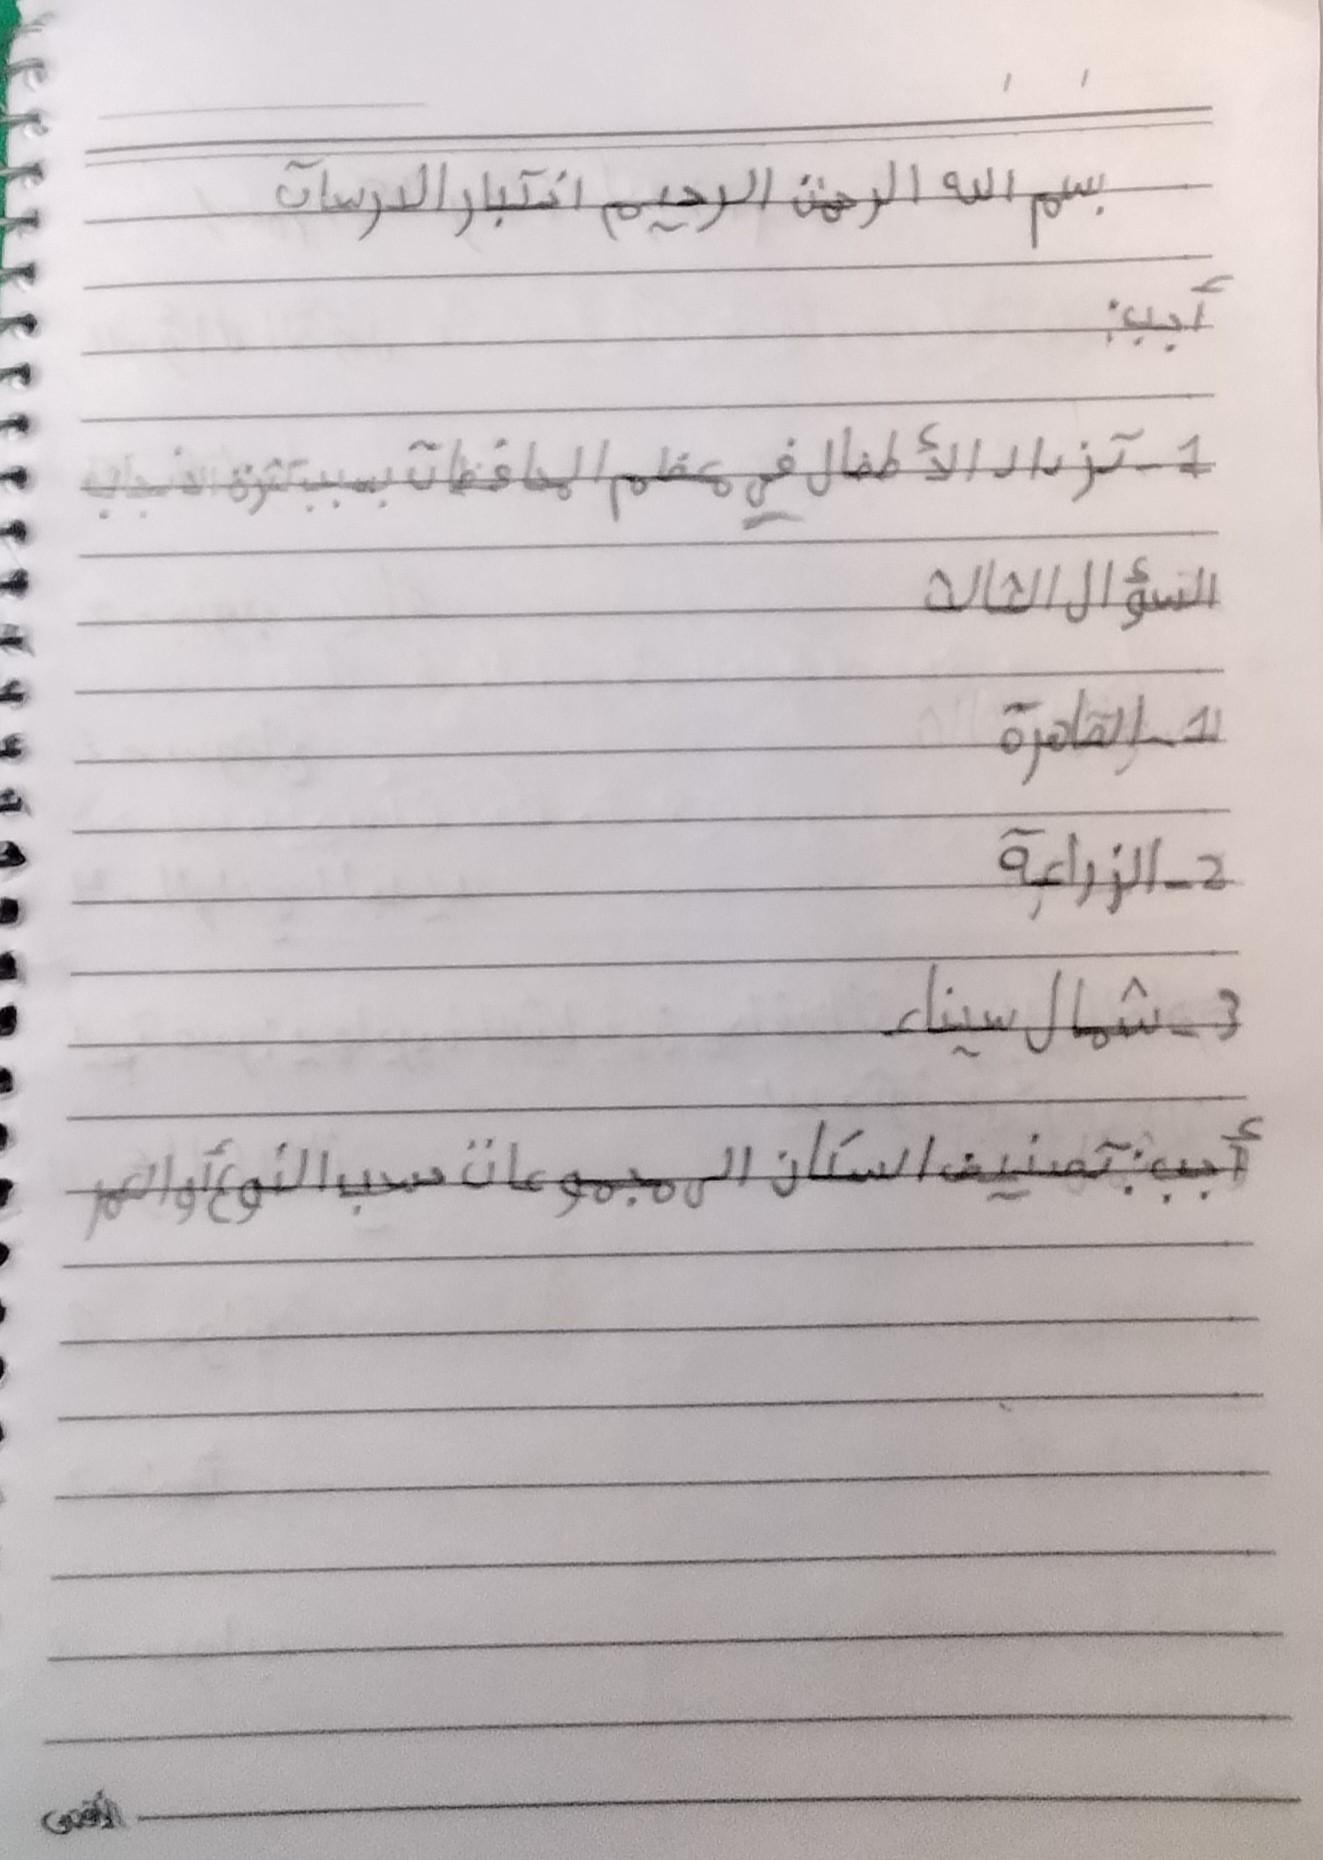 بسم الله الرحمن الرحيم اختبار الدرسات
أجب:
1- تزداد الأطفال في معظم المحافظات بسبب كثرة الانجاب
السؤال الثالث
1- القاهرة
2- الزراعية
3- شمال سيناء
أجب: تصنيف السكان الى مجموعات حسب النوع أو العمر
الأقصى